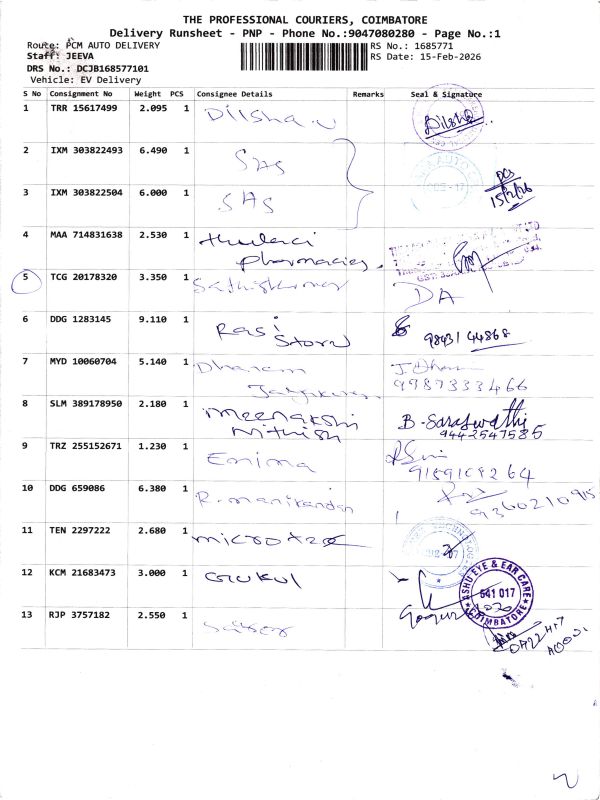 THE PROFESSIONAL COURIERS, COIMBATORE
Delivery Runsheet - PNP - Phone No.:9047080280 - Page No.:1
Route: PCM AUTO DELIVERY
RS No.: 1685771
Staff: JEEVA
RS Date: 15-Feb-2026
DRS No.: DCJB168577101
Vehicle: EV Delivery
S No Consignment No Weight PCS Consignee Details Remarks Seal & Signature
1 TRR 15617499 2.095 1 Dilsha
Dilsha
2 IXM 303822493 6.490 1 SAS
3 IXM 303822504 6.000 1 SAS
15/2/26
4 MAA 714831638 2.530 1
pharmacies.
5 TCG 20178320 3.350 1 Sathiskumar DA
6 DDG 1283145 9.110 1 Rasi
Store 98431 44868
7 MYD 10060704 5.140 1 Dharam
9987333466
8 SLM 389178950 2.180 1 Meenakshi B-Saraswathi
Nithish 9442547585
9 TRZ 255152671 1.230 1 Enima
10 DDG 659086 6.380 1 R. manikandan
11 TEN 2297222 2.680 1
12 KCM 21683473 3.000 1 Gokul
ASHU EYE & EAR CARE
641 017
COIMBATORE
13 RJP 3757182 2.550 1